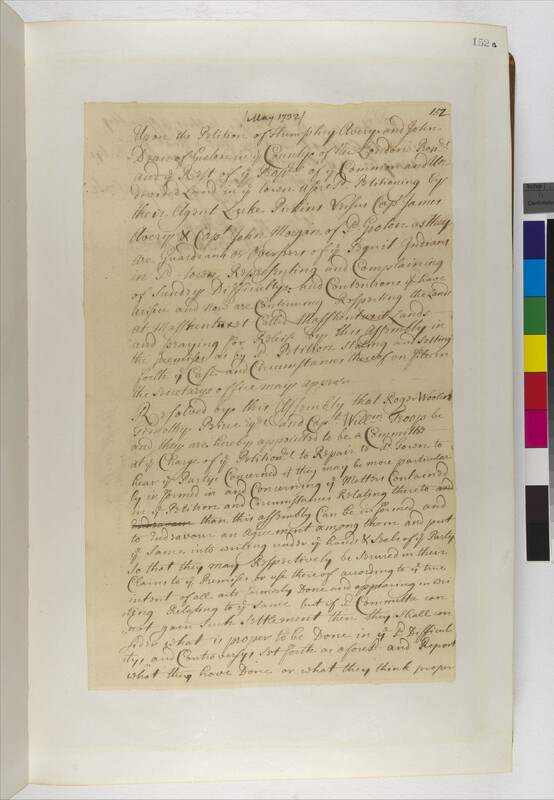 152a
152
[May 1732]
Upon the Petition of Humphry Avery and John
Dean of Groton in ye County of New London
and ye Rest of ye Propts of ye Common and Un
divided Land in ye town afores'd Petitioning by
their Agent Luke Perkins Versus Capt James
Avery & Capt John Morgan of sd Groton as they
are Guardians or Overseers of ye Pequit Indians
in sd town Representing and Complaining
of Sundry Difficultys and Contentions yt have
arisen and now are Continuing Respecting the Lands
at Called Lands
and praying for Releife by this Assembly in
the premises as by sd Petition stating and setting
forth ye Case and Circumstances thereof on file in
the Secretarys office may appear
Resolved by this Assembly that Roger Wolcott
Timothy Peirce and Capt Willm Throop be
and they are hereby appointed to be a Committee
at ye Charge of ye Petitionrs to Repair to sd Town to
hear ye Partys Concerned yt they may be more particular
ly informed in and Concerning ye Matters Contained
in ye Petition and Circumstances Relating thereto and
than this assembly Can be informed and
to Endeavour an Agreement among them and put
ye Same into writing under ye hands & Seals of ye Partys
so that they may Respectively be Secured in their
Claims to ye Premises or use thereof according to ye true
intent of all acts formerly Done and appearing in wri
ting Relating to ye Same but if sd Committee can
not gain such Settlement then they Shall con
sider what is proper to be Done in ye sd Difficul
tys and Controversys set forth as aforesd and Report
what they have Done or what they think proper